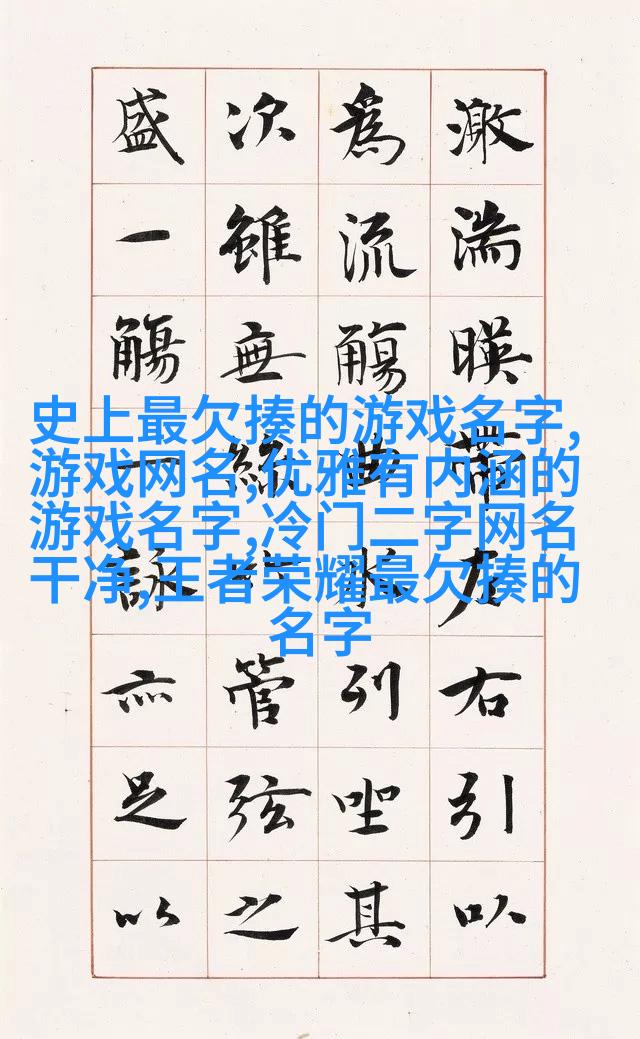 激湍暎帶左右引以
為流觴曲水列坐其
次雖無絲竹管弦之
盛一觴一詠亦足以
史上最欠揍的游戏名字,
游戏网名,优雅有内涵的
游戏名字,冷门二字网名
干净,王者荣耀最欠揍的
名字